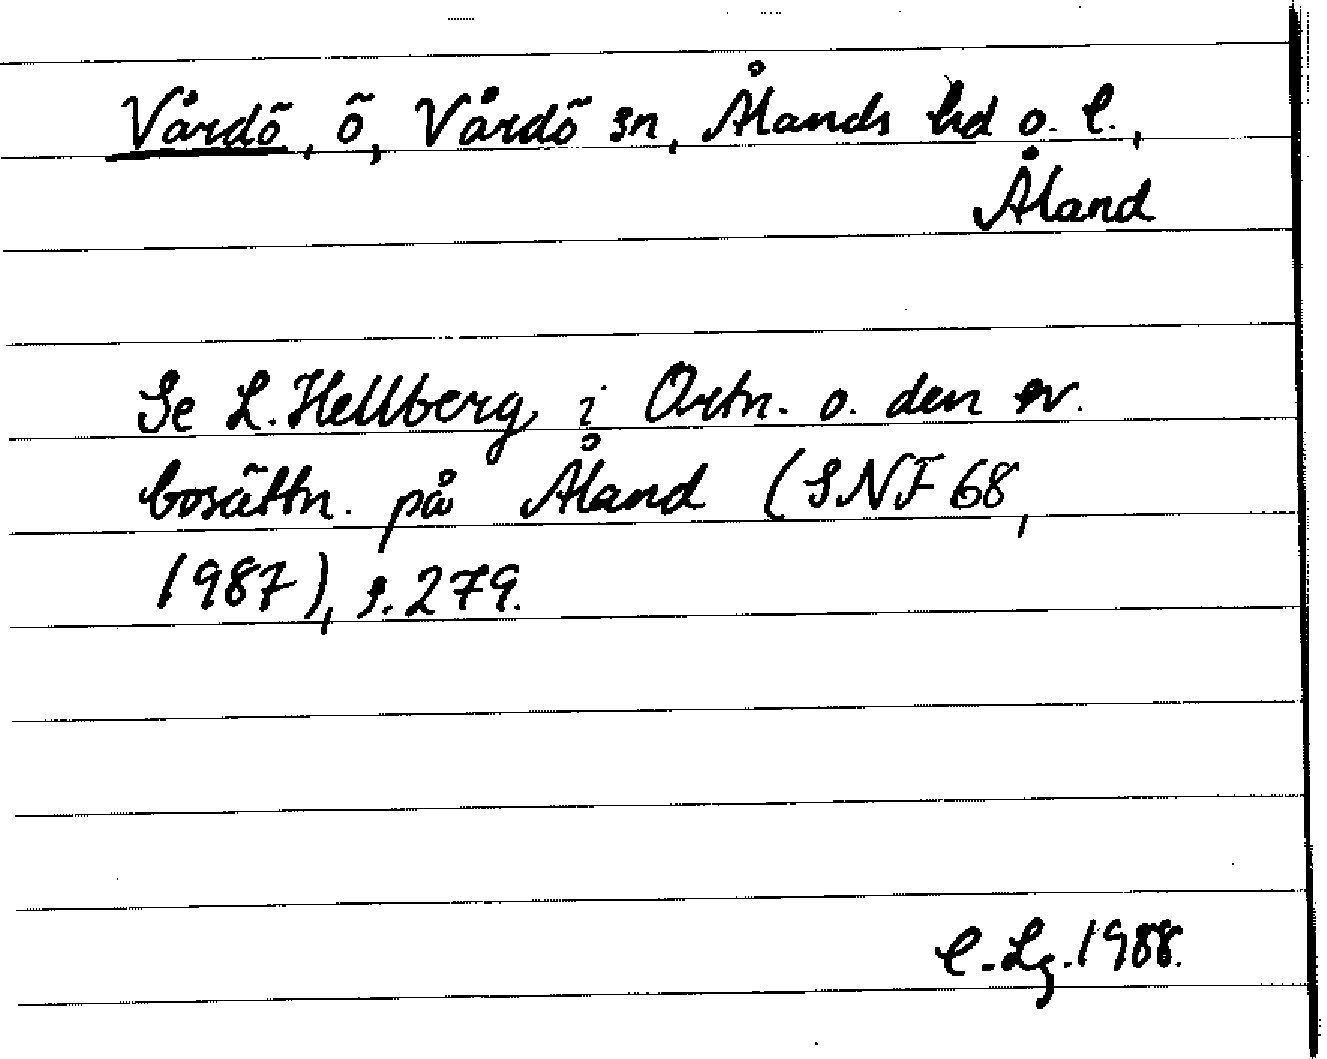 Vårdö, ö, Vårdö sn, Ålands hd o. l.,
Åland
Se L. Hellberg i Ortn. o. den sv.
bosättn. på Åland (SNF 68,
1987), s. 279.
C. Lg. 1988.